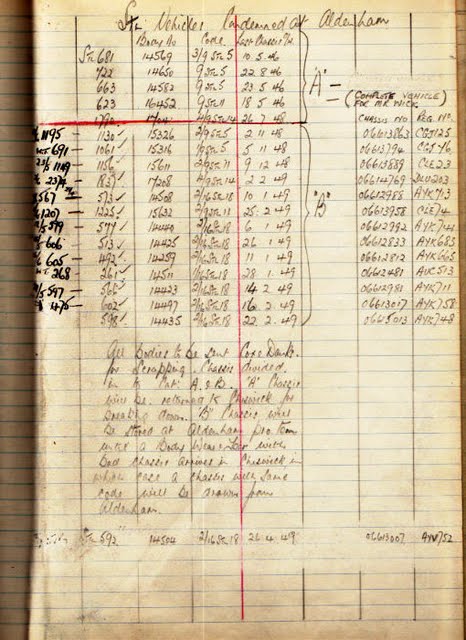 STL Vehicles Condemned at Aldenham
Body No Code Last Chassis O/H
STL 681 14569 3/9 STL 5 10 5 46
722 14650 9 STL 5 22 8 46
663 14582 9 STL 5 23 5 46 "A" (COMPLETE VEHICLE)
623 16452 9 STL 11 18 5 46 FOR MR WICK.
26 7 48 CHASSIS NO REG. NO.
1195 1130 15326 2/9 STL 5 2 11 48 06613863 CGJ125
691 1061 15316 9 STL 5 5 11 48 06613794 CGJ
1149 1156 15611 11 9 12 48 06613889 CLE23
1837 17208 14 2 2 49 06614769 DLU203
567 573 14508 2/16 STL 18 10 1 49 "B" 06612988 AYK713
1207 1225 15632 11 25 2 49 06613958 CLE74
579 577 14440 2/16 STL 18 6 1 49 06612992
606 513 14425 2/16 STL 18 26 1 49 06612833 AXK685
605 492 14259 2/16 STL 18 11 1 49 06612812 AXK665
268 261 14511 18 28 1 49 06612481 AXK513
597 14423 2/16 STL 18 14 2 49 06612981 AYK711
475 602 14497 2/16 STL 18 16 2 49 06613017 AYK758
598 14435 2/16 STL 18 22 2 49 06615013 AYK748
All Bodies to be sent Cox & Danks
for Scrapping. Chassis divided
in to Cat. A & B. "A" Chassis
will be returned to Chiswick for
breaking down. "B" Chassis will
be stored at Aldenham pro tem
until a Body with
Bad chassis arrives in Chiswick in
which case a chassis with same
code will be drawn from
Aldenham.
STL 592 14504 2/16 STL 18 26 4 49 06613007 AYV752